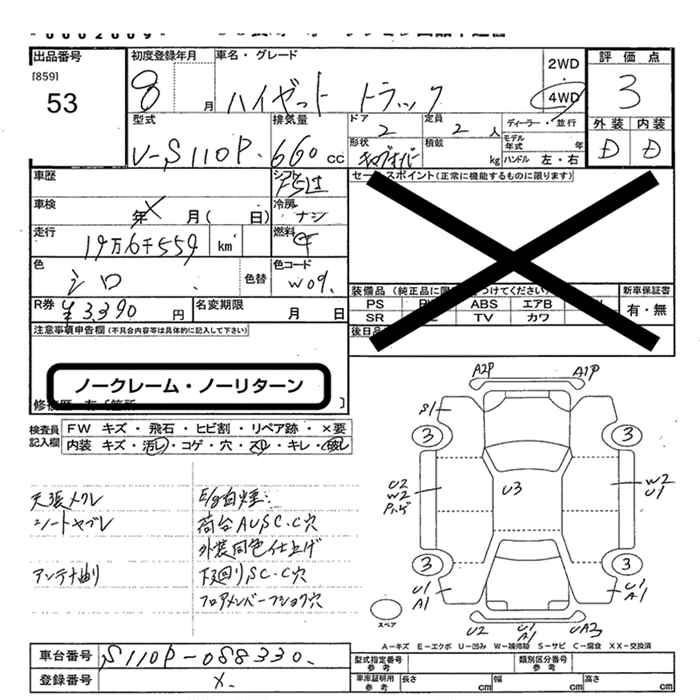 出品番号
[859]
53
初度登録年月
8 月
車名・グレード
ハイゼット トラック
2WD
4WD
評価点
3
外装 内装
D D
型式
V-S110P.
排気量
660 cc
ドア
2
定員
2 人
ディーラー・並行
モデル年式 年
形状
キャブオーバー
積載
kg
ハンドル 左・右
車歴
シフト
F5
冷房
ナシ
車検
年 X 月( 日)
走行
19万6千559 km
燃料
色
シロ
色替
色コード
W09.
R券
¥3,390 円
名変期限
月 日
セールスポイント(正常に機能するものに限ります)
装備品
PS ABS エアB
SR TV カワ
新車保証書
有・無
注意事項申告欄(不具合内容等は具体的に記入して下さい)
ノークレーム・ノーリターン
検査員記入欄
FW キズ・飛石・ヒビ割・リペア跡・×要
内装 キズ・汚レ・コゲ・穴・スレ・キレ・破レ
天張メクレ
シートヤブレ
アンテナ曲り
E/g白煙:
荷台AUSC.C穴
外装同色仕上げ
下回りSC.C穴
フロアメンバーフショク穴
A2P A1P
S1
3 3
U2
W2
U3
W2
U1
3 3
U1
A1
U1
A1
スペア
U2
U1
A1
UA3
A=キズ E=エクボ U=凹み W=補修跡 S=サビ C=腐食 XX=交換済
車台番号
S110P-088330.
登録番号
X.
型式指定番号 参考
類別区分番号 参考
車庫証明用 参考
長さ cm
幅 cm
高さ cm